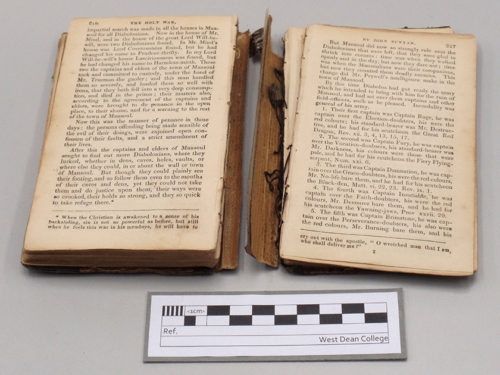 THE HOLY WAR,
Impartial search was made in all the houses in Man-
soul for all Diabolonians. Now in the house of Mr.
Mind, and in the house of the great Lord Will be-
will, were two Diabolonians found. In Mr. Mind's
house was Lord Covetousness found, but he had
changed his name to Prudent-thrifty. In my Lord
Will-be-will's house Lasciviousness was found, but
he had changed his name to Harmless-mirth. These
two the captains and elders of the town of Mansoul
took and committed to custody, under the hand of
Mr. Trueman the gaoler; and this man handled
them so severely, and loaded them so well with
irons, that they both fell into a very deep consump-
tion, and died in the prison; their masters also,
according to the agreement of the captains and
elders, were brought to do penance in the open
place, to their shame, and for a warning to the rest
of the town of Mansoul.
Now this was the manner of penance in those
days; the persons offending being made sensible of
the evil of their doings, were enjoined open con-
fession of their faults, and a strict amendment of
their lives.
After this the captains and elders of Mansoul
sought to find out more Diabolonians, where they
lurked, whether in dens, caves, holes, vaults, or
where else they could, in or about the wall or town
of Mansoul. But though they could plainly see
their footing, and so follow them even to the mouths
of their caves and dens, yet they could not take
them and do justice upon them, their ways were
so crooked, their holds so strong, and they so quick
to take refuge there.*
* When the Christian is awakened to a sense of his
backsliding, sin is not so powerful as before, but still
when he feels this was in his members, he will have to
BY JOHN BUNYAN.
227
But Mansoul did now so strongly rule over the
Diabolonians that were left, that they were glad to
shrink into corners; time was when they walked
openly and in the day, but now they
time was when
when now they counted them deadly enemies. This
change did Mr. Prywell's intelligence make in the
town of Mansoul.
By this time Diabolus had got ready the army
which he intended to bring with him for the ruin of
Mansoul, and had set over them captains and other
field-officers, such as he pleased,
general of his army.
1. Their first captain was Captain Rage, he was
captain over the Election-doubters, his were the
red colours; his standard-bearer was Mr. Destruc-
tive, and he had for his scutcheon the Great Red
Dragon, Rev. xii. 3, 4, 13, 15, 17.
2. The second captain was Captain Fury, he was captain
over the Vocation-doubters, his standard-bearer was
Mr. Darkness, his colours were those that were
pale, and he had for his scutcheon the Fiery Flying
serpent, Num. xxi. 6.
3. The third was Captain Damnation, he was cap-
tain over the Grace-doubters, his were the red colours,
Mr. No-life bare them, and he had for his scutcheon
the Black-den, Matt. xi. 22, 23, Rev. ix. 1.
4. The fourth was Captain Insatiable, he was
captain over the Faith-doubters, his were the red
colours, Mr. Devourer bare them, and he had for
his scutcheon the Yawning-jaws, Prov. xxvii. 20.
5. The fifth was Captain Brimstone, he was cap-
tain over the Perseverance-doubters, his also were
the red colours, Mr. Burning bare them, and his
cry out with the apostle, "O wretched man that I am,
who shall deliver me?"
<1cm>
Ref.
West Dean College